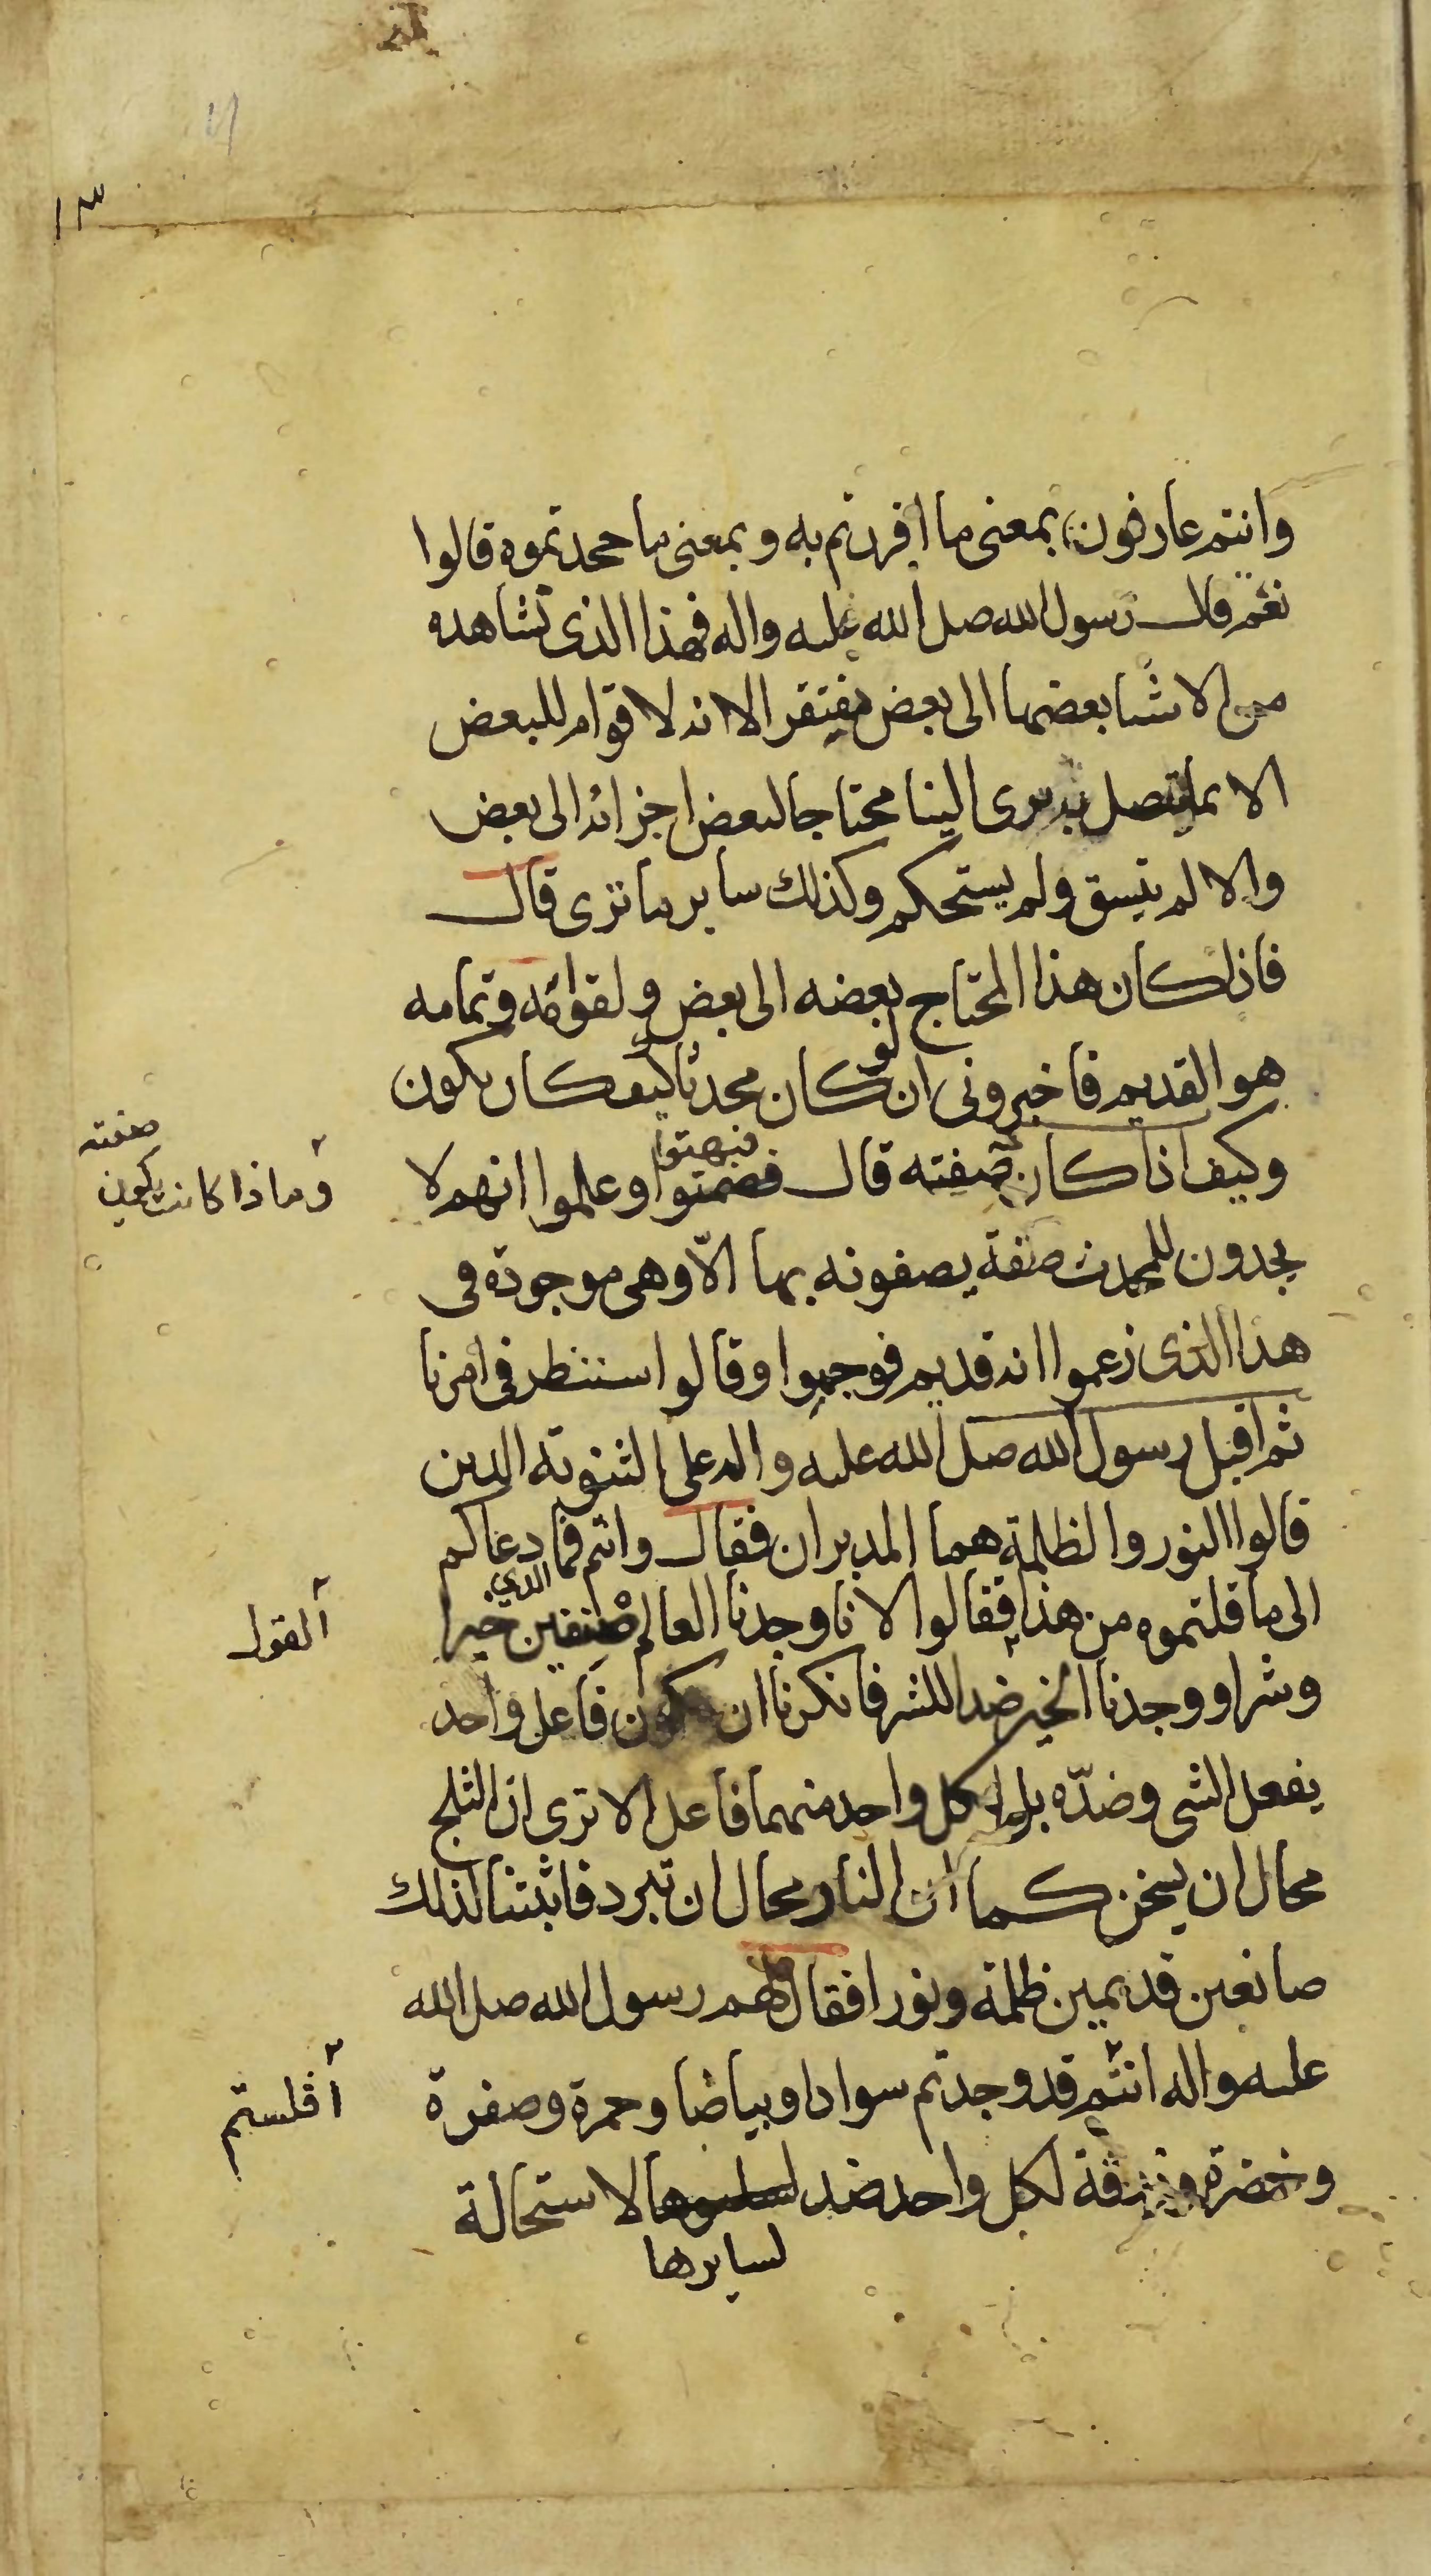 ١٣
وانتم عارفون بمعنى ما اقررتم به وبمعنى ما جحدتموه قالوا
نعم قال رسول الله صلى الله عليه واله فهذا الذى تشاهده
من الاشيا بعضها الى بعض مفتقر الا انه لا قوام للبعض
الا بما يتصل به ترى البنا محتاجا لبعض اجزائه الى بعض
والا لم يتسق ولم يستحكم وكذلك ساير ما ترى قال
فاذا كان هذا المحتاج بعضه الى بعض ولقوامه وتمامه
هو القديم فاخبرونى ان لو كان محدثا كيف كان يكون
وكيف اذا كان صفته قال فبهتوا وعلموا انهم لا
وماذا كانت يكون صفته
يجدون للمحدث صفة يصفونه بها الّا وهى موجودة فى
هذا الذى زعموا انه قديم فوجموا وقالوا سننظر فى امرنا
ثم اقبل رسول الله صلى الله عليه واله على الثنوية الذين
قالوا النور والظلمة هما المدبران فقال وانتم فما الذي دعاكم
الى ما قلتموه من هذا فقالوا لانا وجدنا العالم صنفين خيرا
القول
وشرا ووجدنا الخير ضدا للشر فانكرنا ان يكون فاعل واحد
يفعل الشى وضدّه بل لكل واحد منهما فاعل الا ترى ان الثلج
محال ان يسخن كما ان النار محال ان تبرد فاثبتنا لذلك
صانعين قديمين ظلمة ونورا فقال لهم رسول الله صلى الله
عليه واله انتم قد وجدتم سوادا وبياضا وحمرة وصفرة
افلستم
وخضرة وزرقة لكل واحد ضد لا ستحالة
لسايرها